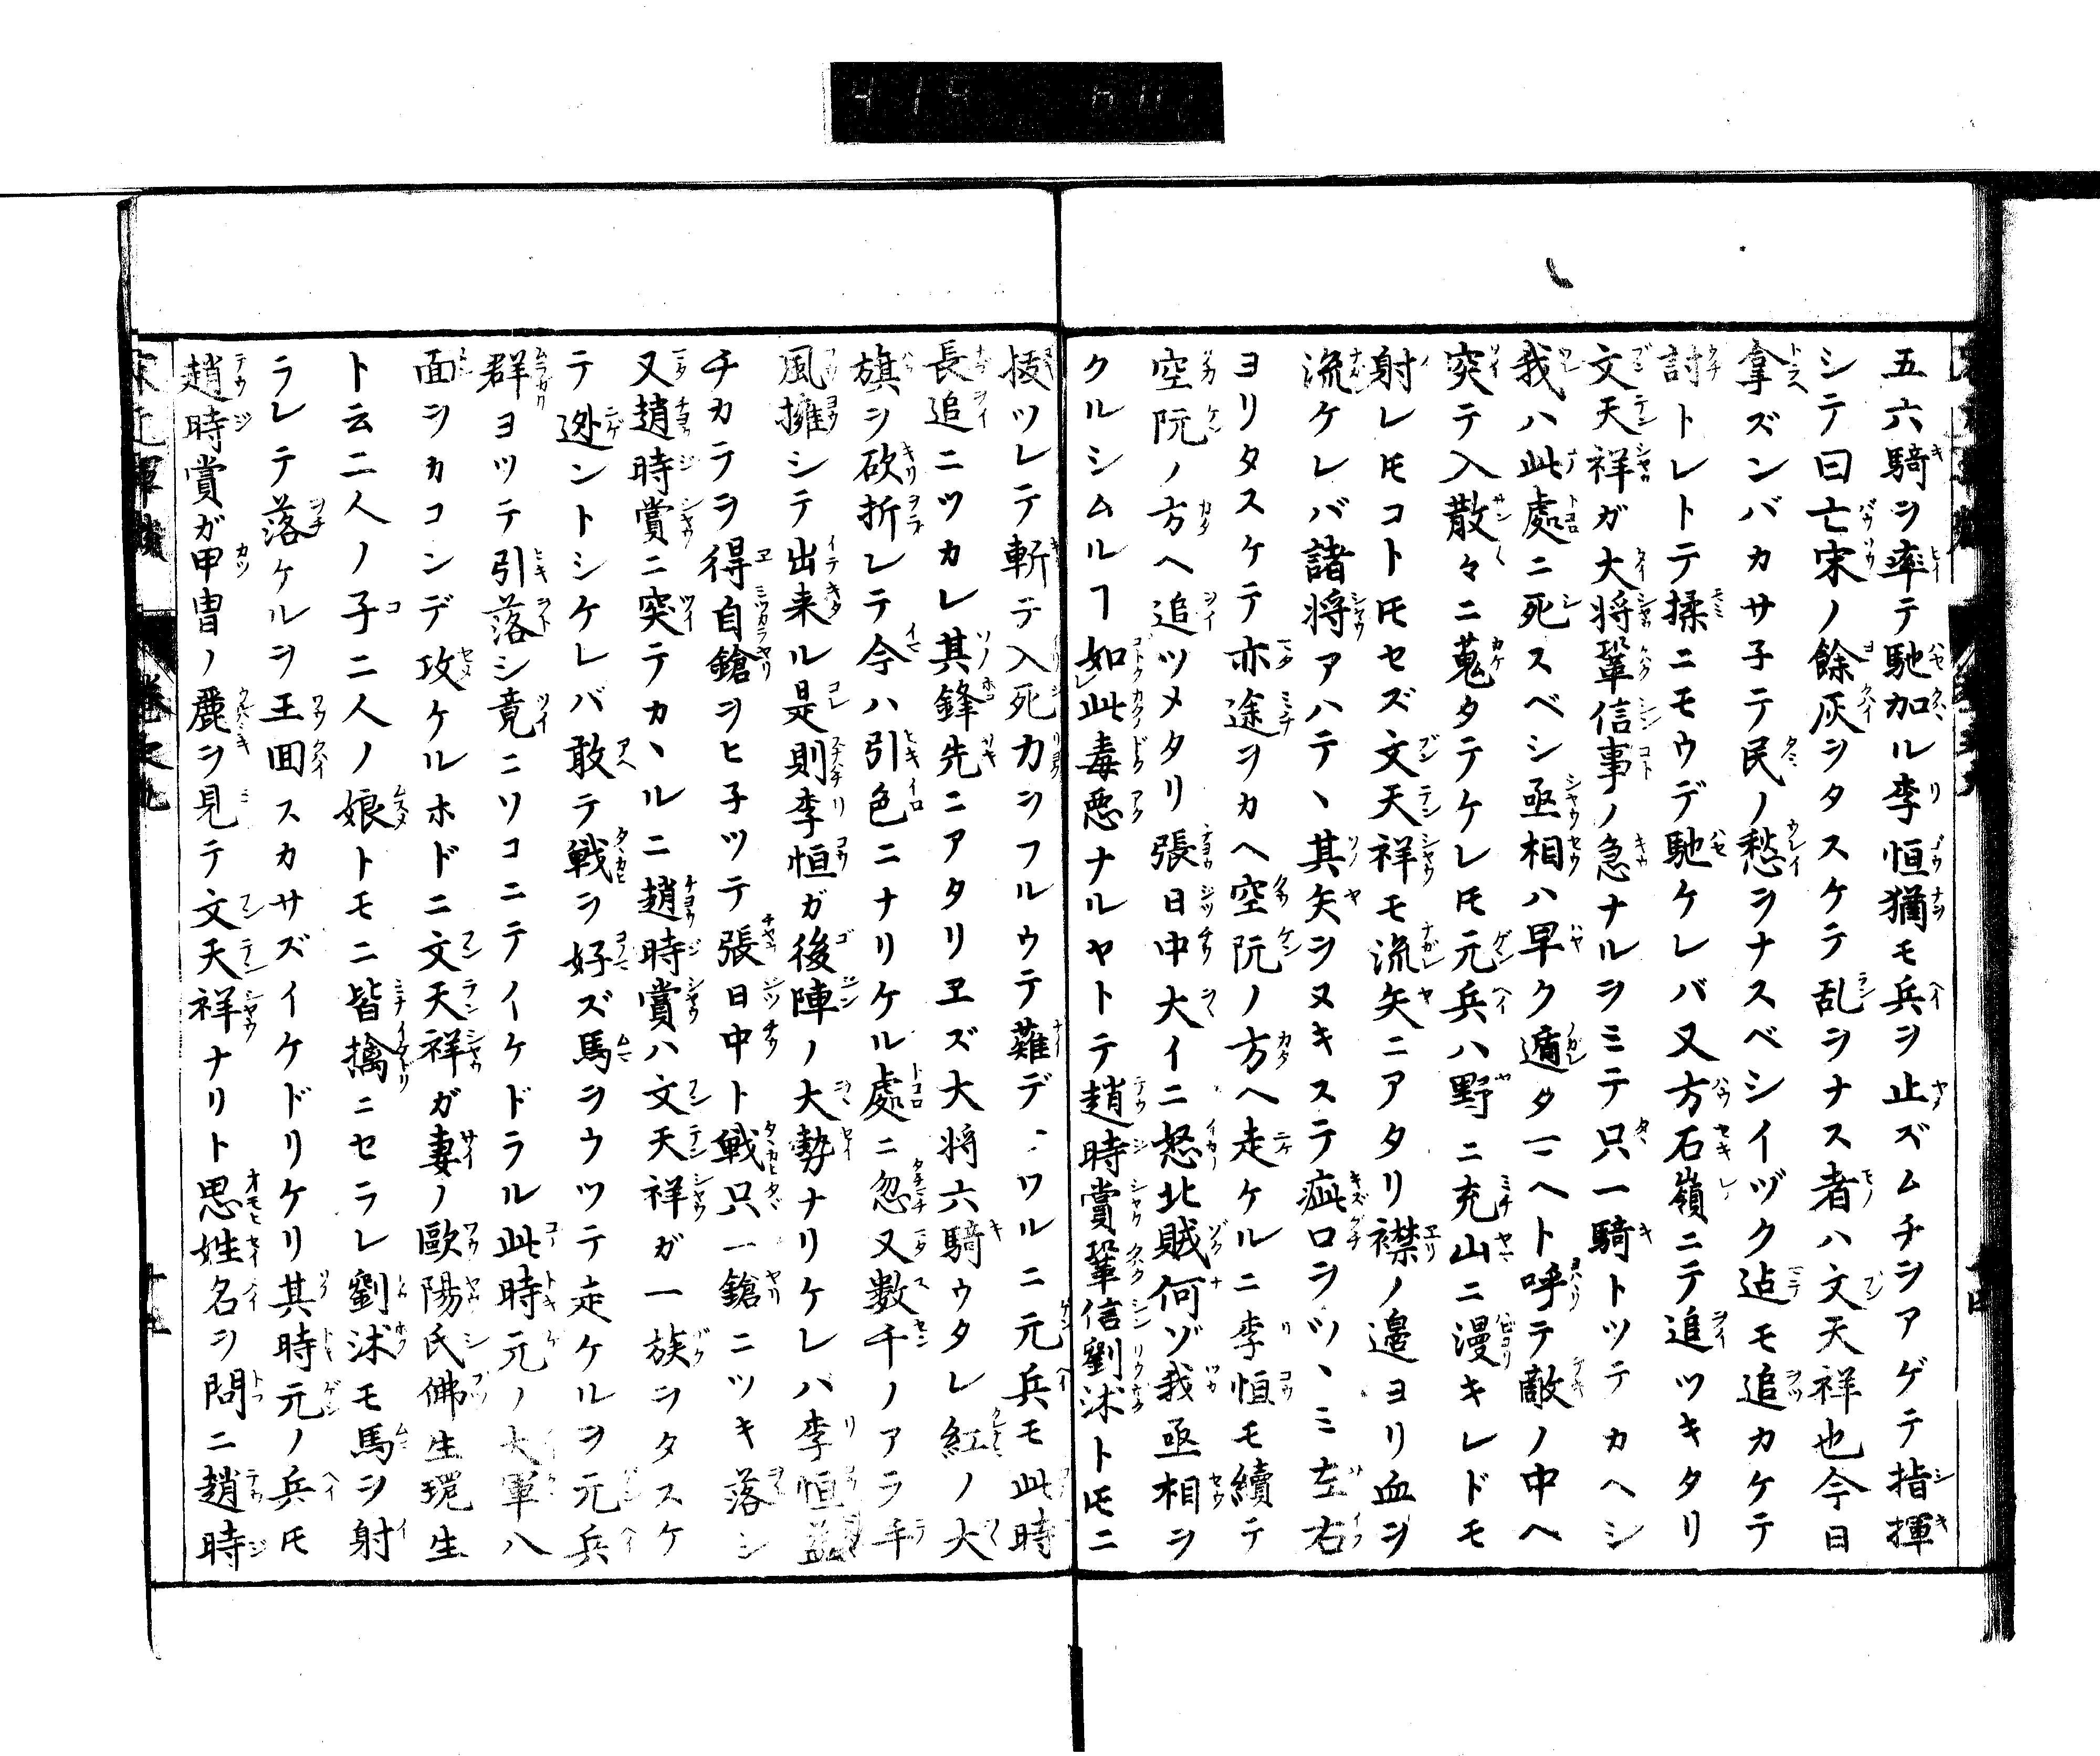 五六騎ヲ率テ馳加ル李恒猶モ兵ヲ止ズムチヲアゲテ指揮
シテ曰亡宋ノ餘灰ヲタスケテ乱ヲナス者ハ文天祥也今日
拿ズンバカサ子テ民ノ愁ヲナスベシイヅク迠モ追カケテ
討トレトテ揉ニモウデ馳ケレバ又方石嶺ニテ追ツキタリ
文天祥ガ大将鞏信事ノ急ナルヲミテ只一騎トツテカヘシ
我ハ此處ニ死スベシ丞相ハ早ク遁タマヘト呼テ敵ノ中ヘ
突テ入散々ニ蒐タテケレ𪜈元兵ハ野ニ充山ニ漫キレドモ
射レ𪜈コト𪜈セズ文天祥モ流矢ニアタリ襟ノ邉ヨリ血ヲ
流ケレバ諸将アハテヽ其矢ヲヌキステ疵口ヲツヽミ左右
ヨリタスケテ亦途ヲカヘ空阬ノ方ヘ走ケルニ李恒モ續テ
空阬ノ方ヘ追ツメタリ張日中大イニ怒北賊何ゾ我丞相ヲ
クルシムルヿ如此毒悪ナルヤトテ趙時賞鞏信劉沭ト𪜈ニ
抜ツレテ斬テ入死力ヲフルウテ薙デヽワルニ元兵モ此時
長追ニツカレ其鋒先ニアタリヱズ大将六騎ウタレ紅ノ大
旗ヲ砍折レテ今ハ引色ニナリケル處ニ忽又数千ノアラ手
風擁シテ出来ル是則李恒ガ後陣ノ大勢ナリケレバ李恒益
チカラヲ得自鎗ヲヒ子ツテ張日中ト戦只一鎗ニツキ落シ
又趙時賞ニ突テカヽルニ趙時賞ハ文天祥ガ一族ヲタスケ
テ迯ントシケレバ敢テ戦ヲ好ズ馬ヲウツテ走ケルヲ元兵
群ヨツテ引落シ竟ニソコニテイケドラル此時元ノ大軍八
面ヲカコンデ攻ケルホドニ文天祥ガ妻ノ歐陽氏佛生環生
ト云二人ノ子二人ノ娘トモニ皆擒ニセラレ劉沭モ馬ヲ射
ラレテ落ケルヲ王囬スカサズイケドリケリ其時元ノ兵𪜈
趙時賞ガ甲冑ノ麗ヲ見テ文天祥ナリト思姓名ヲ問ニ趙時